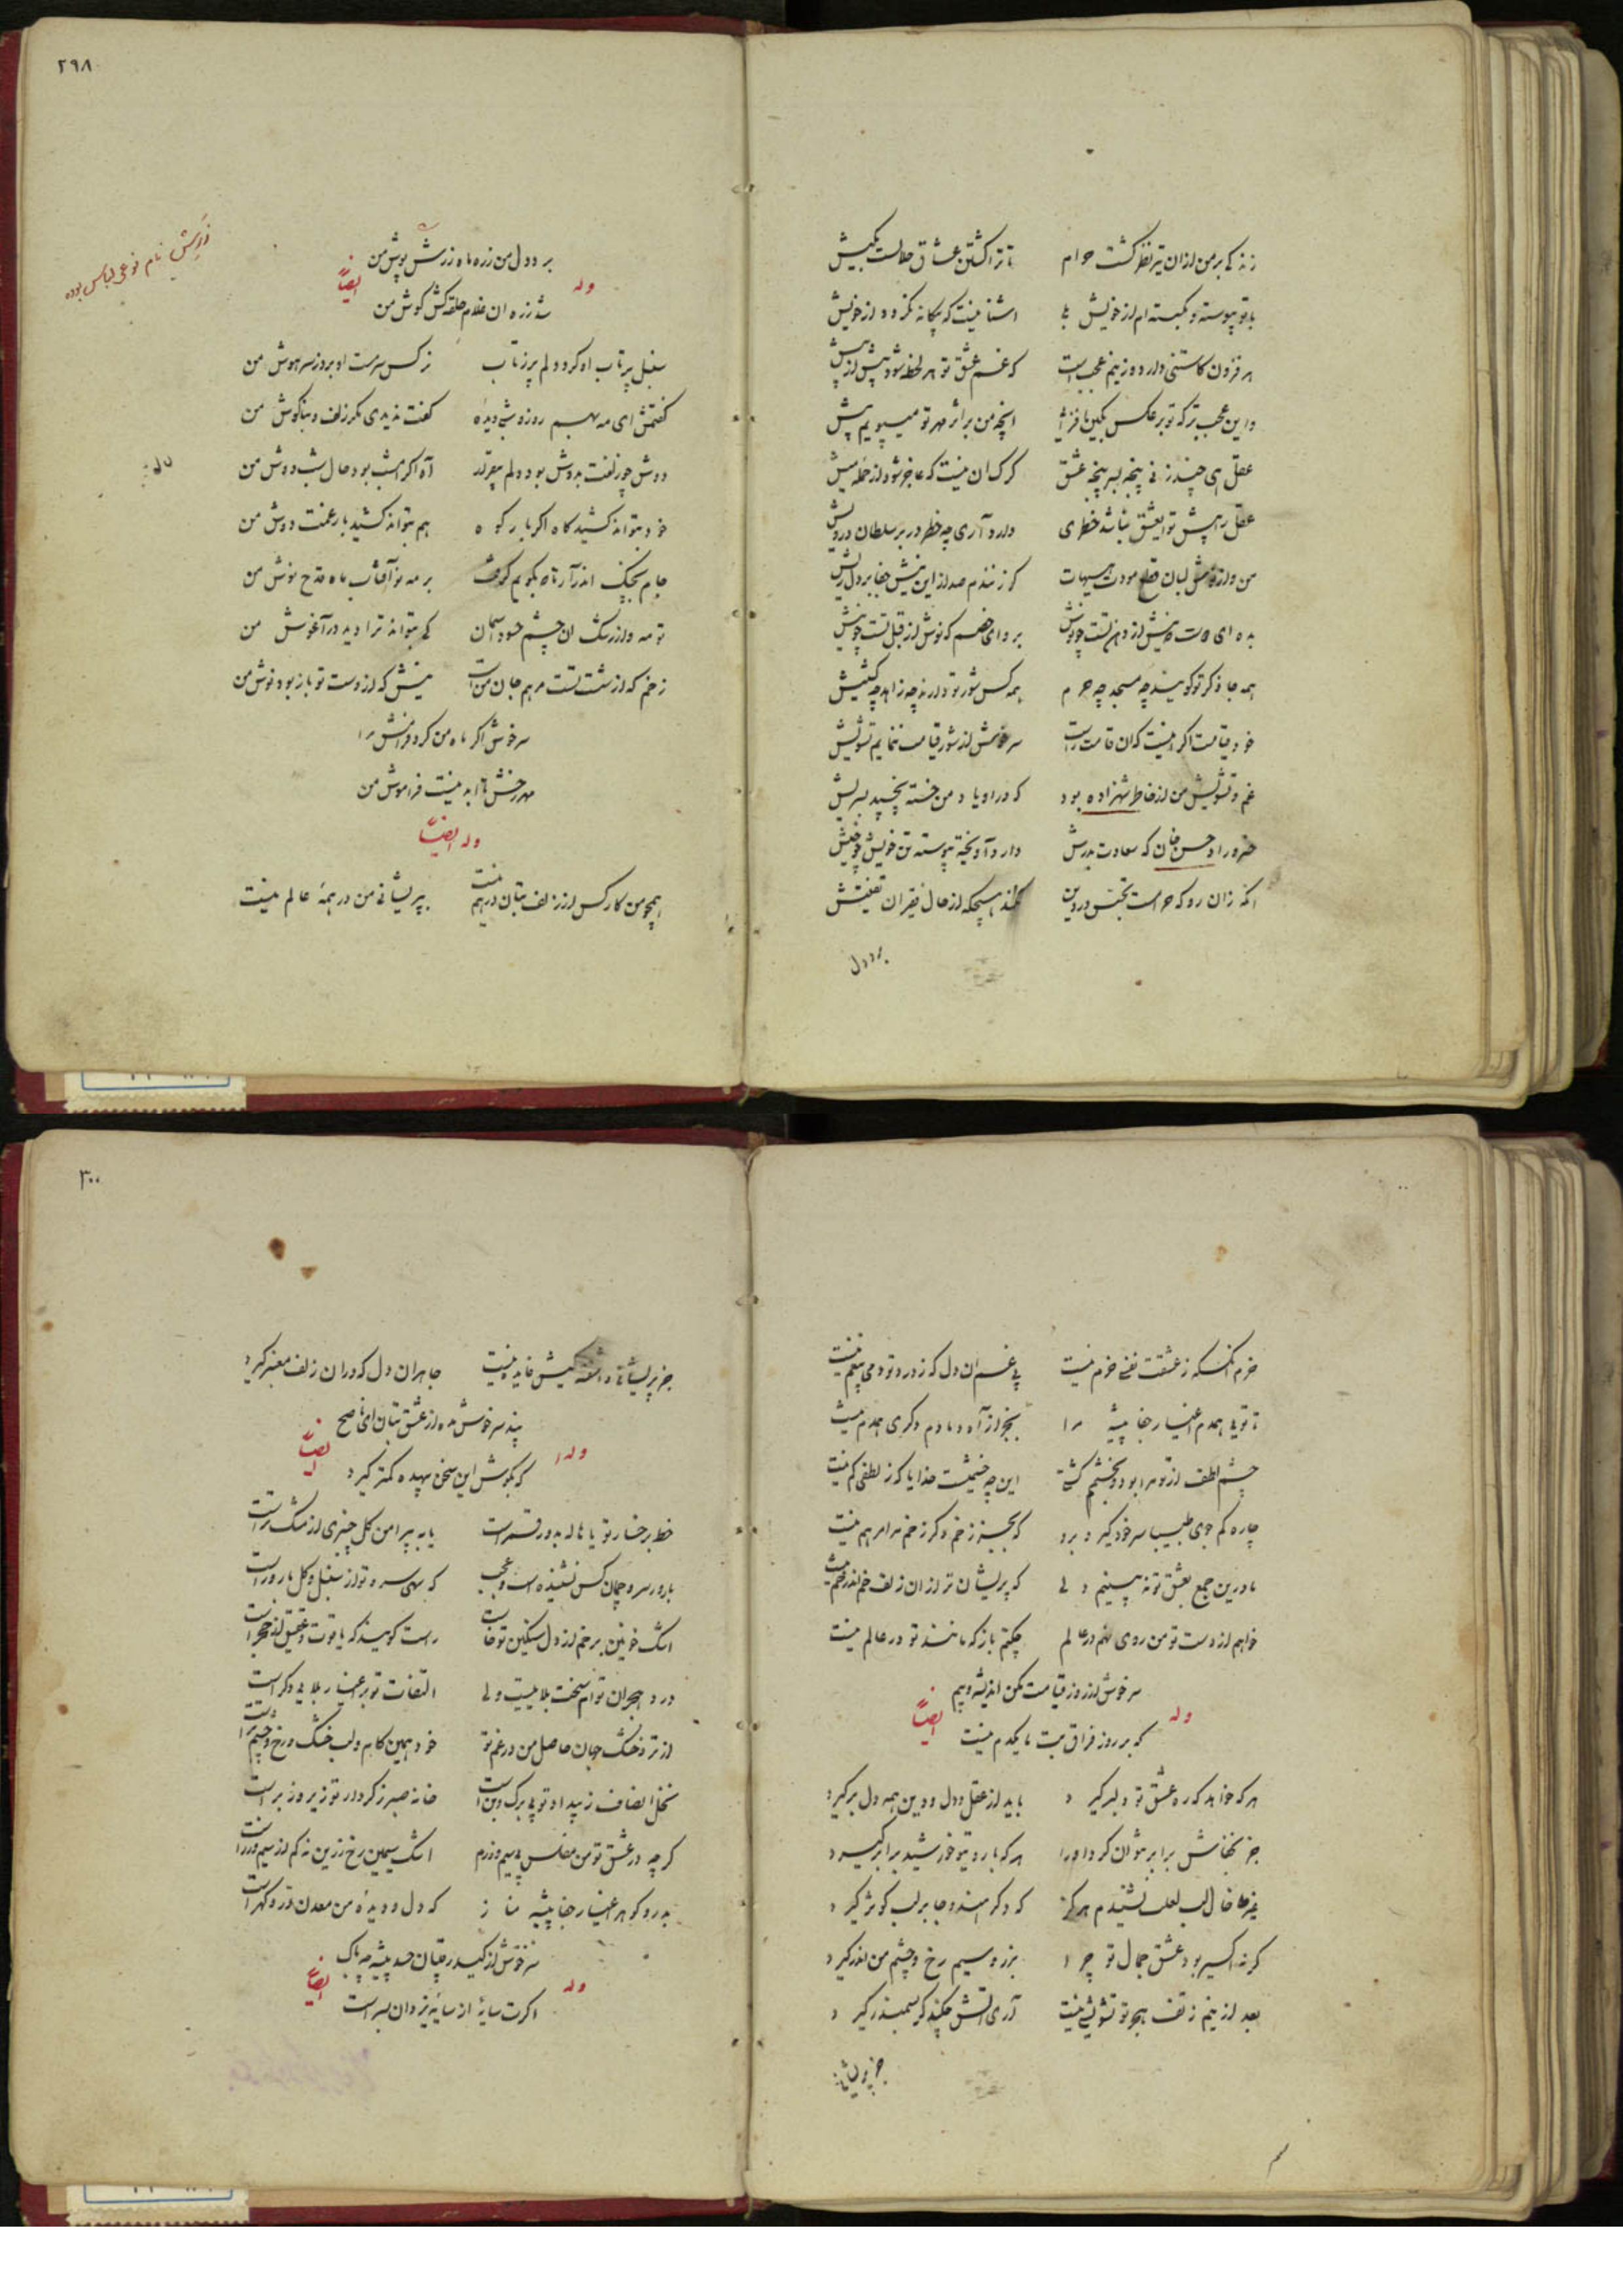 زند کی بر من از ان تیر نظر گشت حرام تا ترا کشتن عشاق حلالست بکیش
با تو پیوسته و بگسسته ام از خویش که با اشنا نیست که بیکانه نکردد از خویش
هر فزون کاستنی دارد وزینم عجب است که غم عشق تو هر لحظه شود بیش از پیش
واین عجب تر که تو بر عکس بکین افزائی انچه من بر اثر مهر تو میپویم بیش
عقل ای چند زنی پنجه بسر پنجه عشق کرک ان نیست که عاجز شود از حمله میش
عقل را پیش تو ایعشق نباشد خطری دارد آری چه خطر در بر سلطان درویش
من و از نوش لبان قطع مودت هیهات کر زنندم صد ازین نیش جفا بر دل ریش
بده ای دوست که نیش از دهن تست چو نوش برو ای خصم که نوش از قبل تست چو نیش
همه جا ذکر تو کویند چه مسجد چه حرم همه کس شور تو دارند چه زاهد چه کشیش
خود قیامت اکر اینست که ان قامت راست سرخوش از شور قیامت ننمایم تشویش
غم و تشویش من از خاطر شهزاده بود که در او یاد من خسته نپیچد بپریش
خسرو راد حسن خان که سعادت بدرش دارد آویخته پیوسته تن خویش چو خیش
انکه زان رو که حرامست تجسس در دین نکند هیچکه از حال فقیران تفتیش
بر دل
٢٩٨
بر دل من زد ماه زرش پوش من
وله ایضاً
شد زره ان غلام حلقه کش کوش من
سنبل پرتاب او کرد دلم پرزتاب نرکس سرمست او برد ز سر هوش من
کفتمش ای مه بهم روز و شبی دیدهٔ کفت ندیدی مکر زلف و بناکوش من
دوش چو زلفت بدوش بود دلم بیقرار آه اکر امشب بود حال شب دوش من
خود بتواند کشید کاه اکر بار کوه هم بتواند کشید بار غمت دوش من
جام بچنک اندر آر تا که بکویم کرفت بر مه نو آفتاب ماه قدح نوش من
تو مه و از رشک ان چشم حسود آسمان کی بتواند ترا دید در آغوش من
زخم که از شست تست مرهم جان من است نیش که از دست تو باز بود نوش من
سرخوش اکر ماه من کرد فرامش مرا
مهر رخش تا ابد نیست فراموش من
وله ایضاً
همچو من کار کس از زلف بتان درهم نیست بپریشانی من در همهٔ عالم نیست
زرپش نام نوعی لباس بوده
خرم انکسکه ز عشقت نفسی خرم نیست بی غم ان دل که ز درد تو دمی بیغم نیست
تا توئی همدم اغیار جفا پیشه مرا بجز از آه دمادم دکری همدم نیست
چشم لطف از تو مرا بود و بخشمم کشتی این چه خشمست خدایا که ز لطفی کم نیست
چاره کم جوی طبیبا سر خود کیر و برو که بجز زخم دکر زخم مرا مرهم نیست
ما درین جمع بعشق تو نه بینیم دلی که پریشان تر ازان زلف خم اندر خم نیست
خواهم از دست تو من روی نهم در عالم چکنم باز که مانند تو در عالم نیست
سرخوش از روز قیامت مکن اندیشه و بیم
وله ایضاً
که بر روز فراق بت ما یکدم نیست
هر که خواهد که ره عشق تو دلبر کیرد باید از عقل و دل و دین همه دل برکیرد
جز بخفاش برابر نتوان کرد او را هر که با روی تو خورشید برابر کیرد
غیر خال لب لعلت نشنیدم هرکز که دکر هندو جا بر لب کوثر کیرد
کر نه اکسیر بود عشق جمال تو چرا بزر و سیم رخ و چشم من اندر کیرد
بعد ازینم ز تف هجر تو تشویشی نیست آری آتش چکند کر بسمندر کیرد
جز پریشانی
٣٠٠
جز پریشانی و اشفتکیش فایده نیست جا هران دل که در ان زلف معنبر کیرد
پند سرخوش مده از عشق بتان ای ناصح
وله ایضاً
که بکوش این سخن بیهده کمتر کیرد
خط بر خسار تو یا هاله بدور قمر است یا به پیرامن کل چنبری از مشک تر است
بارور سرو چمان کس نشنیده است و عجب که سهی سرو تو از سنبل و کل بارور است
اشک خونین برخم از دل سنکین تو خاست راست کویند که یاقوت و عقیق از حجر است
درد هجران توام سخت بلائیست ولی التفات تو بر اغیار بلای دکر است
از تر و خشک جهان حاصل من در غم تو خود همین کام و لب خشک و رخ و چشم تر است
نخل انصاف ز بیداد تو بی برک و بن است خانهٔ صبر ز کردار تو زیر و زبر است
کر چه در عشق تو من مفلس بی سیم و زرم اشک سیمین رخ زرین نه کم از سیم و زر است
بدر و کوهر اغیار جفا پیشه مناز که دل و دیدهٔ من معدن در و کهر است
سرخوش از کید رقیبان حسد پیشه چه باک
وله ایضاً
اکرت سایهٔ از سایهٔ یزدان بسر است